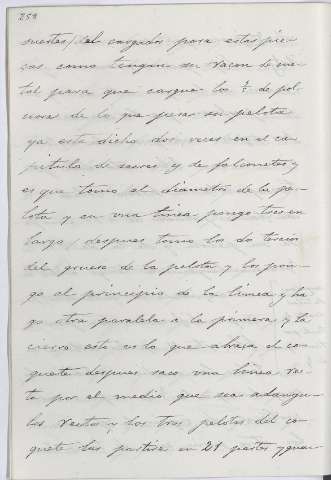 258
puestas / del cargador para estas pie-
ças como tengan su racon de me-
tal para que carguen los 2/3 de pol-
vora de lo que pesar su pelota
ya esta dicho dos veces en el ca-
pitulo de sacres y de falconetes y
es que tomo el diametro de la pe-
lota y en una linea pongo tres en
largo / despues tomo los dos tercios
del grueso de la pelota y los pon-
go al principio de la linea y ha-
go otra paralela a la primera y la
cierro esto es lo que abraça el ca-
quete despues saco una linea rec-
ta por el medio que sea adangu-
los rectos y los tres pelotas del ca-
quete las partira en 21 partes y guar-